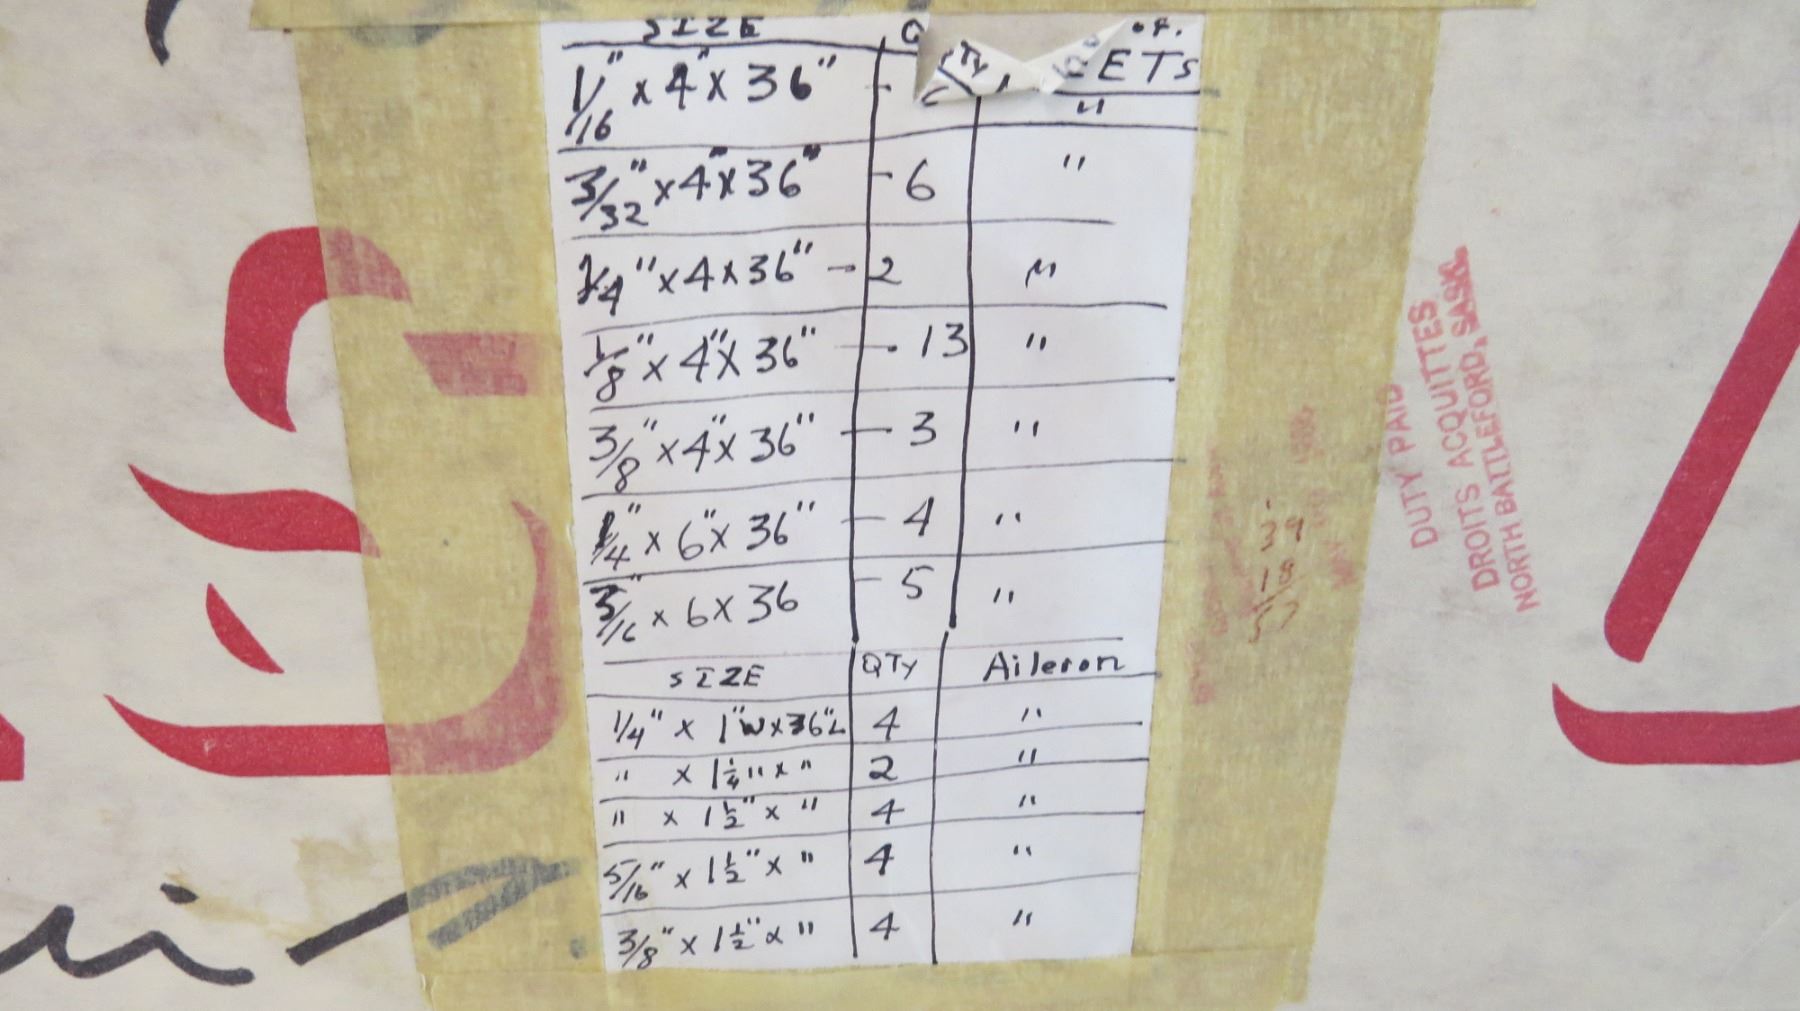 SIZE QTY OF.
1/16" x 4" x 36" - "
3/32" x 4" x 36" - 6 "
1/4" x 4 x 36" - 2 "
1/8" x 4" x 36" - 13 "
3/8" x 4" x 36" - 3 "
1/4" x 6" x 36" - 4 "
3/16" x 6 x 36 - 5 "
SIZE QTY Aileron
1/4" x 1"W x 36"L 4 "
" x 1 1/4" x " 2 "
" x 1 1/2" x " 4 "
5/16" x 1 1/2" x " 4 "
3/8" x 1 1/2" x " 4 "
DUTY PAID
DROITS ACQUITTES
NORTH BATTLEFORD, SASK.